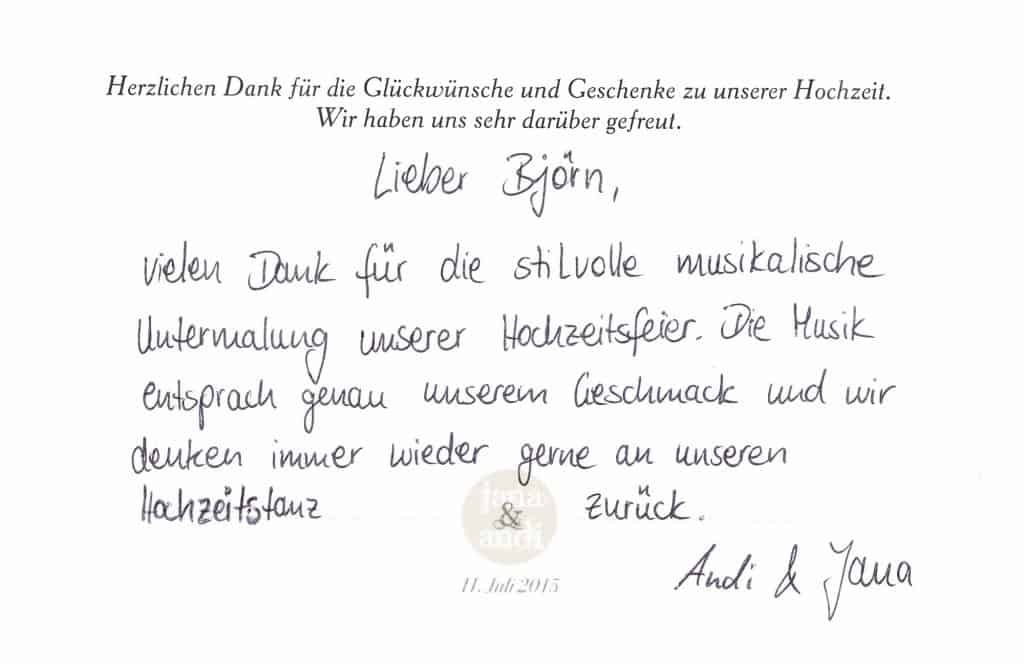 Herzlichen Dank für die Glückwünsche und Geschenke zu unserer Hochzeit.
Wir haben uns sehr darüber gefreut.
Lieber Björn,
vielen Dank für die stilvolle musikalische
Untermalung unserer Hochzeitsfeier. Die Musik
entsprach genau unserem Geschmack und wir
denken immer wieder gerne an unseren
Hochzeitstanz zurück.
jana
&
andi
11. Juli 2015
Andi & Jana